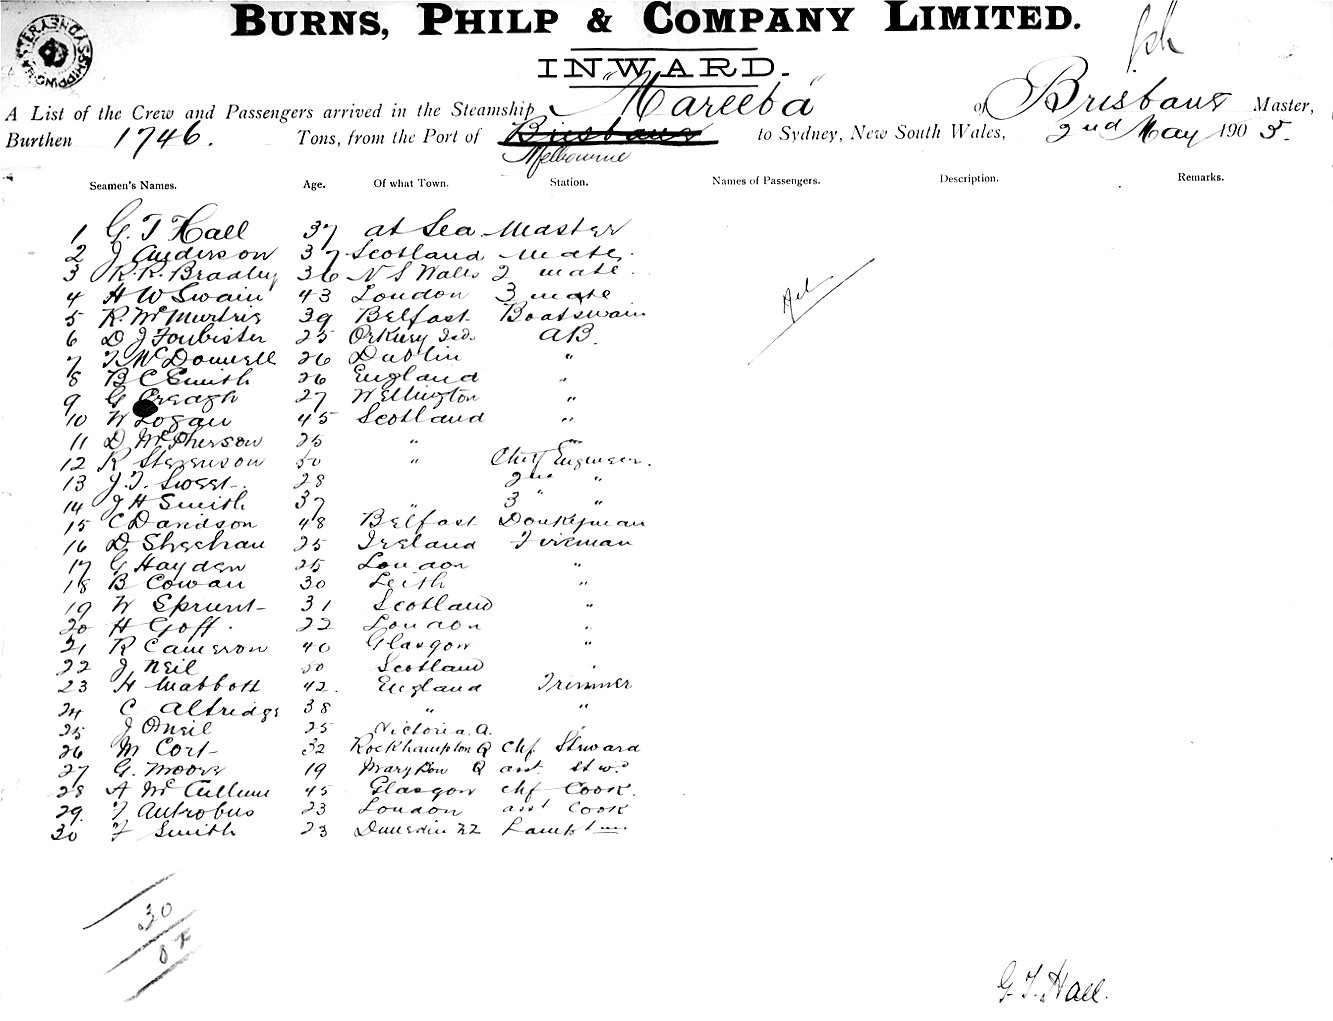 BURNS, PHILP & COMPANY LIMITED.
INWARD.
A List of the Crew and Passengers arrived in the Steamship "Mareeba" of Brisbane Master,
Burthen 1746. Tons, from the Port of Brisbane to Sydney, New South Wales, 2nd May 1905.
Melbourne
Seamen's Names. Age. Of what Town. Station. Names of Passengers. Description. Remarks.
1 G. T Hall 37 at Sea Master
2 J Anderson 37 Scotland Mate.
3 R. R. Bradley 36 N S Wales 2 mate.
4 H W Swain 43 London 3 mate
5 R. Mc Murtrie 39 Belfast Boatswain
6 D J Foubister 25 Orkney Isd. AB.
7 T. Mc Donnell 26 Dublin "
8 B C Smith 26 England "
9 G Creagh 27 Wellington "
10 W Logan 45 Scotland "
11 D McPherson 25 " "
12 R Stevenson 50 " Chief Engineer.
13 J. T. Sweet 28 2nd "
14 J H Smith 37 " 3 " "
15 C Davidson 48 Belfast Donkeyman
16 D Sheehan 25 Ireland Fireman
17 G Hayden 25 London "
18 B Cowan 30 Leith "
19 W Sprunt 31 Scotland "
20 H Goff. 22 London "
21 R Cameron 40 Glasgow "
22 J Neil 50 Scotland "
23 H Mabbott 42. England Trimmer
24 C Aldridge 38 " "
25 J ONeil 25 Victoria. A. "
26 M Cort 32 Rockhampton Q Chf. Steward
27 G. Moore 19 Mary Bou Q asst. Stwd
28 A Mc Cullum 45 Glasgow chf Cook.
29. T Autrobus 23 London asst Cook
30 F Smith 23 Dunedin NZ Lampt
30
G. T. Hall.